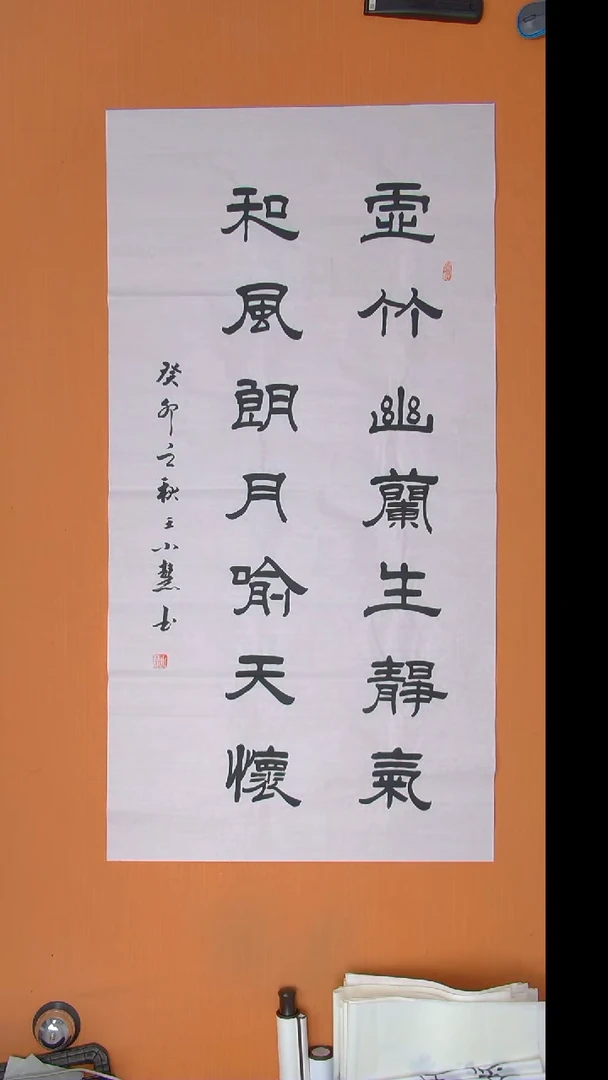 虛竹幽蘭生靜氣
和風朗月喻天懷
癸卯之秋王小慧书